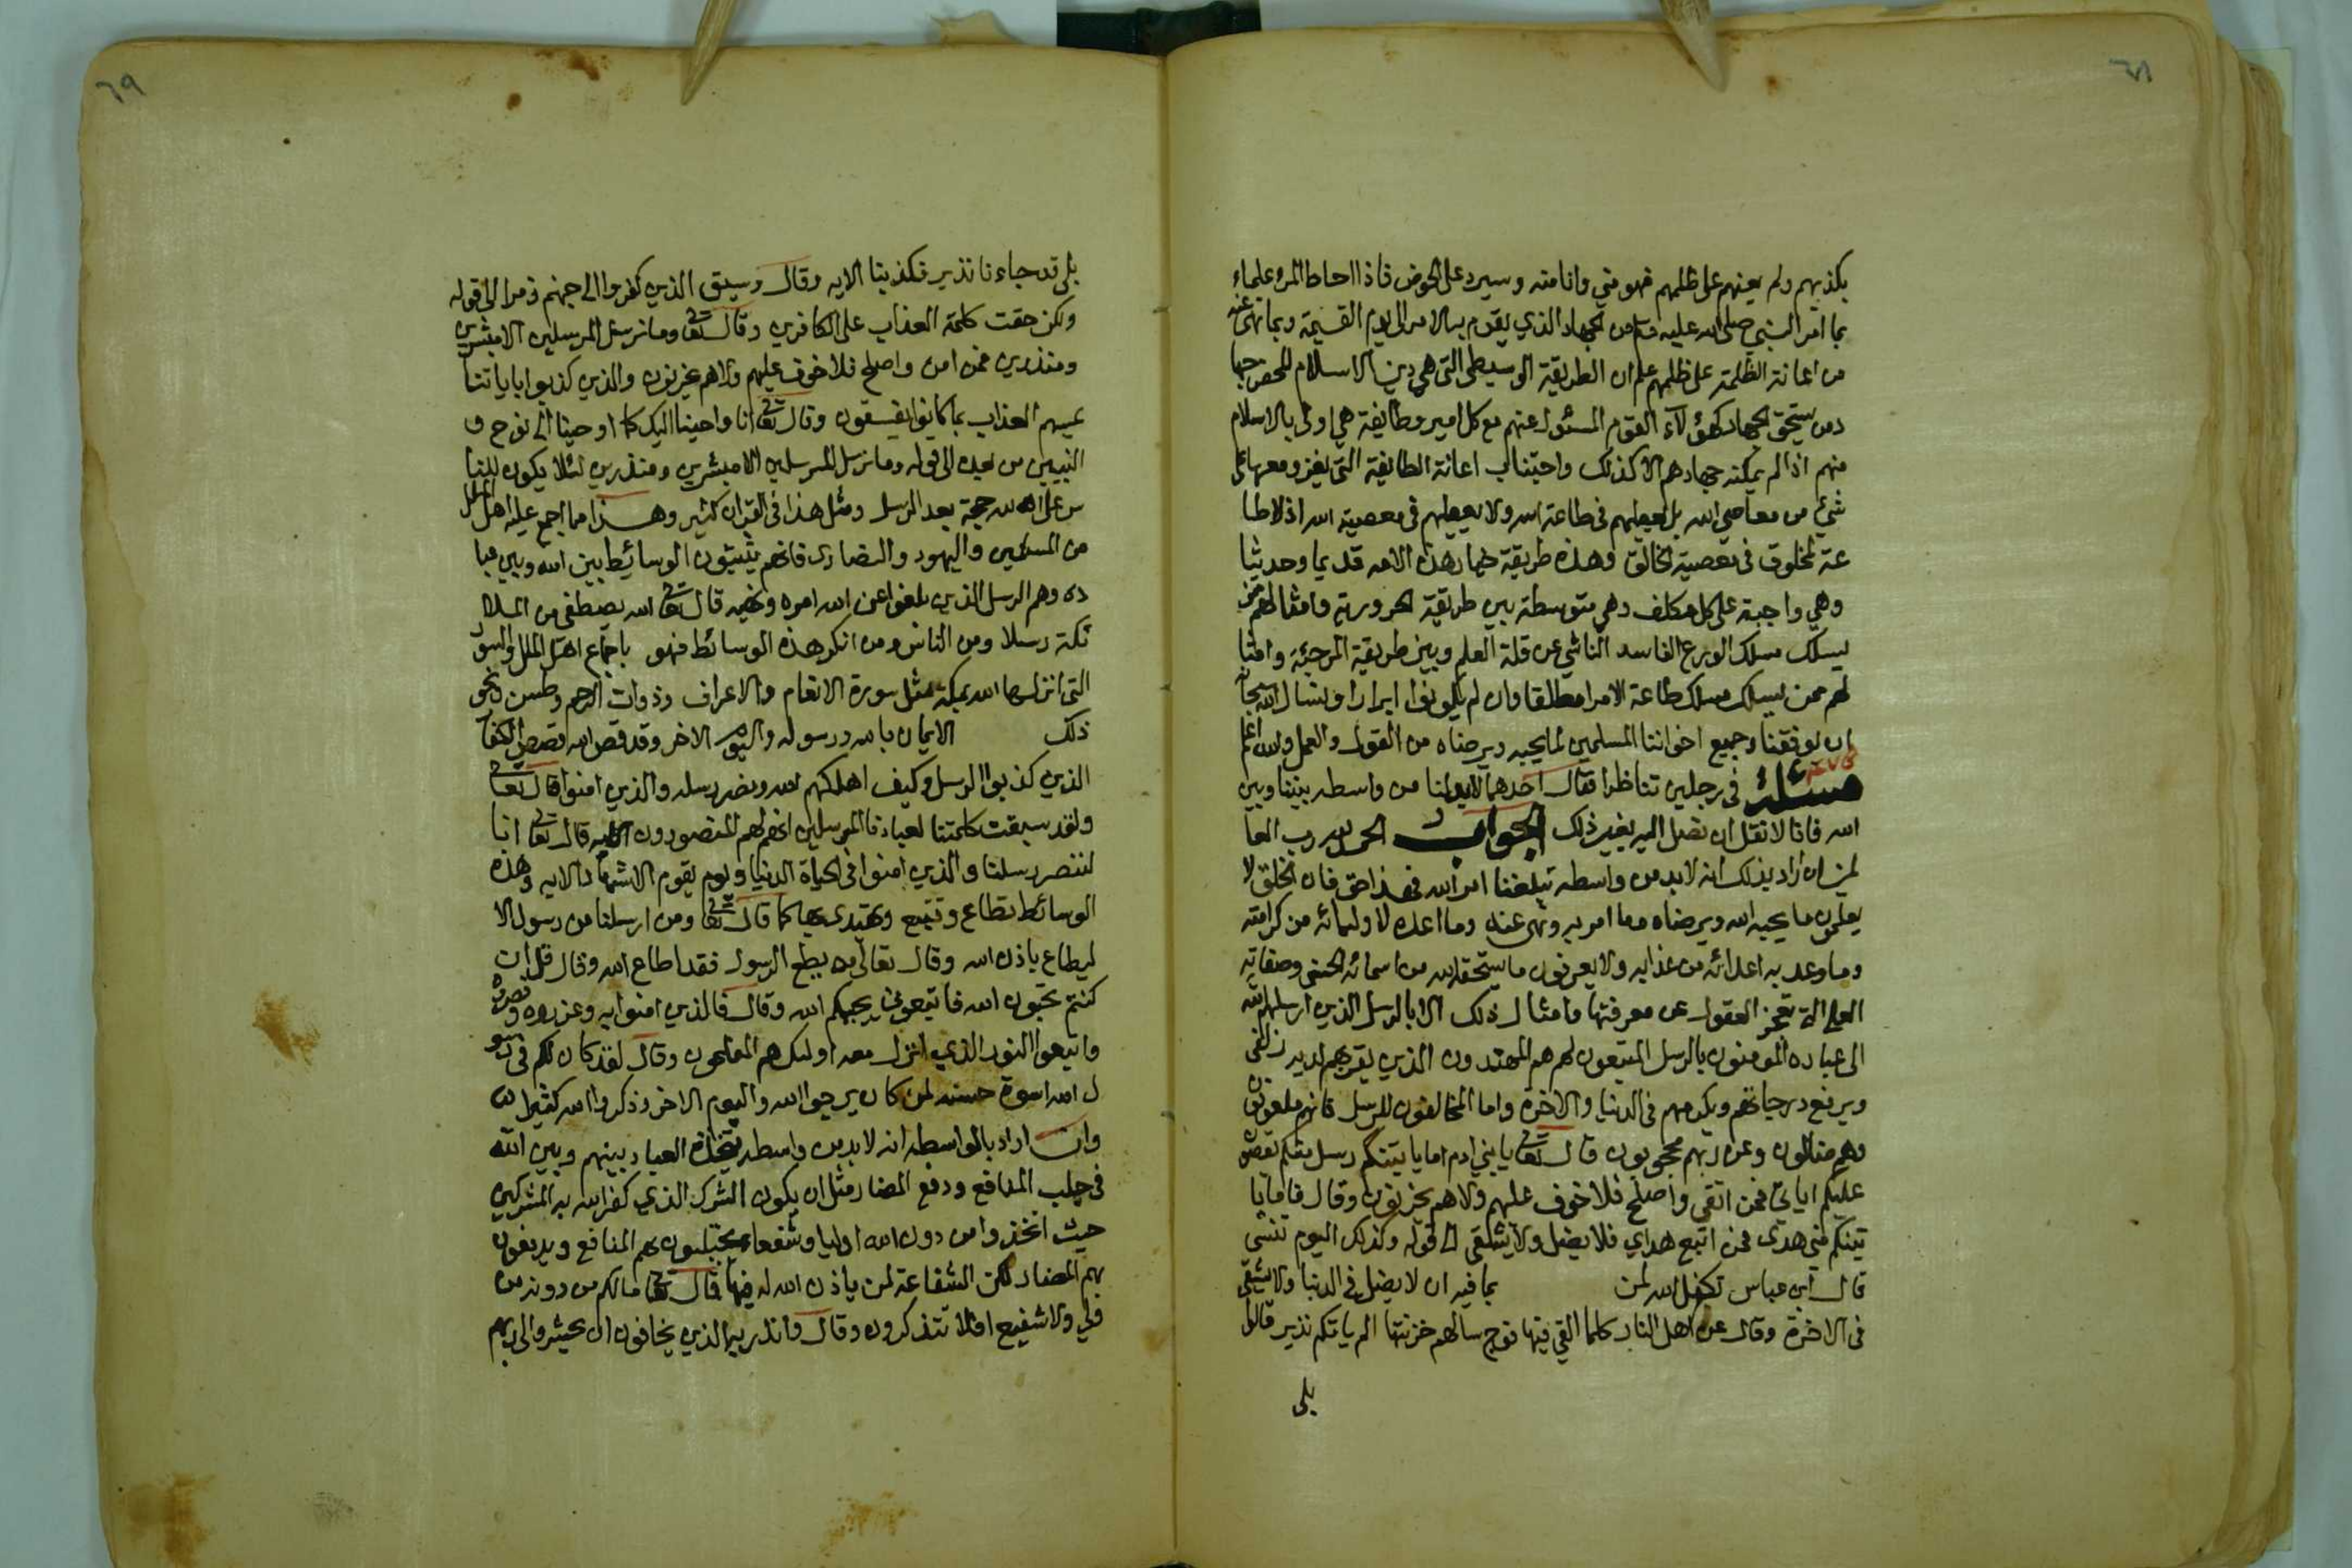 ٦٨
بكذبهم ولم يعينهم على ظلمهم فهو مني وانا منه وسيرد على الحوض فاذا احاط المرء علما
بما امر النبي صلى الله عليه وسلم من الجهاد الذي يقوم به الامرا الى يوم القيمة وبما نهى عنه
من اعانة الظلمة على ظلمهم علم ان الطريقة الوسيطى التي هي دين الاسلام المحض جها
د من يستحق الجهاد كهؤلاء القوم المسئول عنهم مع كل امير وطايفة هي اولى بالاسلام
منهم اذا لم يمكنه جهادهم الا كذلك واجتناب اعانة الطايفة التي يغزو معها على
شيء من معاصي الله بل يطيعهم في طاعة الله ولا يطيعهم في معصية الله اذ لا طا
عة لمخلوق في معصية الخالق وهذه طريقة خيار هذه الامه قديما وحديثا
وهي واجبة على كل مكلف وهي متوسطة بين طريقة الحرورية وامثالهم ممن
يسلك مسلك الورع الفاسد الناشي عن قلة العلم وبين طريقة المرجئة وامثا
لهم ممن يسلك مسلك طاعة الامرا مطلقا وان لم يكونوا ابرارا ونسال الله سبحانه
ان يوفقنا وجميع اخواننا المسلمين لما يحبه ويرضاه من القول والعمل والله اعلم
مسئلة في رجلين تناظرا فقال احدهما لابد لنا من واسطه بيننا وبين
الله فانا لا نقدر ان نصل اليه بغير ذلك الجواب الحمد لله رب العا
لمين ان اراد بذلك انه لابد من واسطه تبلغنا امر الله فهذا حق فان الخلق لا
يعلمون ما يحبه الله ويرضاه وما امر به ونهى عنه وما اعده لاوليائه من كرامته
وما وعد به اعدائه من عذابه ولا يعرفون ما يستحقه الله من اسمائه الحسنى وصفاته
العلى التي تعجز العقول عن معرفتها وامثال ذلك الا بالرسل الذين ارسلهم الله
الى عباده المومنون بالرسل المتبعون لهم هم المهتدون الذين يقربهم لديه زلفى
ويرفع درجاتهم ويكرمهم في الدنيا والاخرة واما المخالفون للرسل فانهم ملعونون
وهم ضالون وعن ربهم محجوبون قال تعالى يا بني ادم اما ياتينكم رسل منكم يقصون
عليكم اياتي فمن اتقى واصلح فلا خوف عليهم ولا هم يحزنون وقال فاما يا
تينكم مني هدى فمن اتبع هداي فلا يضل ولا يشقى الى قوله وكذلك اليوم تنسى
قال ابن عباس تكفل الله لمن بما فيه ان لا يضل في الدنيا ولا يشقى
في الاخرة وقال عن اهل النار كلما القي فيها فوج سالهم خزنتها الم ياتكم نذير قالوا
بلى
٦٩
بلى قد جاءنا نذير فكذبنا الايه وقال وسيق الذين كفروا الى جهنم زمرا الى قوله
ولكن حقت كلمة العذاب على الكافرين وقال تعالى وما نرسل المرسلين الا مبشرين
ومنذرين فمن امن واصلح فلا خوف عليهم ولا هم يحزنون والذين كذبوا باياتنا
يمسهم العذاب بما كانوا يفسقون وقال تعالى انا اوحينا اليك كما اوحينا الى نوح و
النبيين من بعده الى قوله وما نرسل المرسلين الا مبشرين ومنذرين لئلا يكون للنا
س على الله حجة بعد الرسل ومثل هذا في القران كثير وهذا مما اجمع عليه اهل الملل
من المسلمين واليهود والنصارى فانهم يثبتون الوسائط بين الله وبين عبا
ده وهم الرسل الذين بلغوا عن الله امره ونهيه قال تعالى الله يصطفي من الملا
ئكة رسلا ومن الناس ومن انكر هذه الوسائط فهو باجماع اهل الملل والسور
التي انزلها الله بمكة مثل سورة الانعام والاعراف وذوات الرحم وطسن ونحو
ذلك الايمان بالله ورسوله واليوم الاخر وقد قص الله قصص الكفار
الذين كذبوا الرسل وكيف اهلكهم الله ونصر رسله والذين امنوا قال تعالى
ولقد سبقت كلمتنا لعبادنا المرسلين انهم لهم المنصورون الايه قال تعالى انا
لننصر رسلنا والذين امنوا في الحياة الدنيا ويوم يقوم الاشهاد الايه وهذه
الوسائط تطاع وتتبع ويقتدى بها كما قال تعالى وما ارسلنا من رسول الا
ليطاع باذن الله وقال تعالى من يطع الرسول فقد اطاع الله وقال قل ان
كنتم تحبون الله فاتبعوني يحببكم الله وقال فالذين امنوا به وعزروه ونصروه
واتبعوا النور الذي انزل معه اوليك هم المفلحون وقال لقد كان لكم في رسو
ل الله اسوة حسنه لمن كان يرجوا الله واليوم الاخر وذكروا الله كثيرا
وان اراد بالواسطه انه لابد من واسطه يتخذه العباد بينهم وبين الله
في جلب المنافع ودفع المضار مثل ان يكون الشرك الذي كفر الله به المشركين
حيث اتخذوا من دون الله اوليا وشفعاء يجتلبون بهم المنافع ويدفعون
بهم المضار لكن الشفاعة لمن ياذن الله له فيها قال تعالى مالكم من دونه من
ولي ولا شفيع افلا تتذكرون وقال وانذر به الذين يخافون ان يحشروا الى ربهم